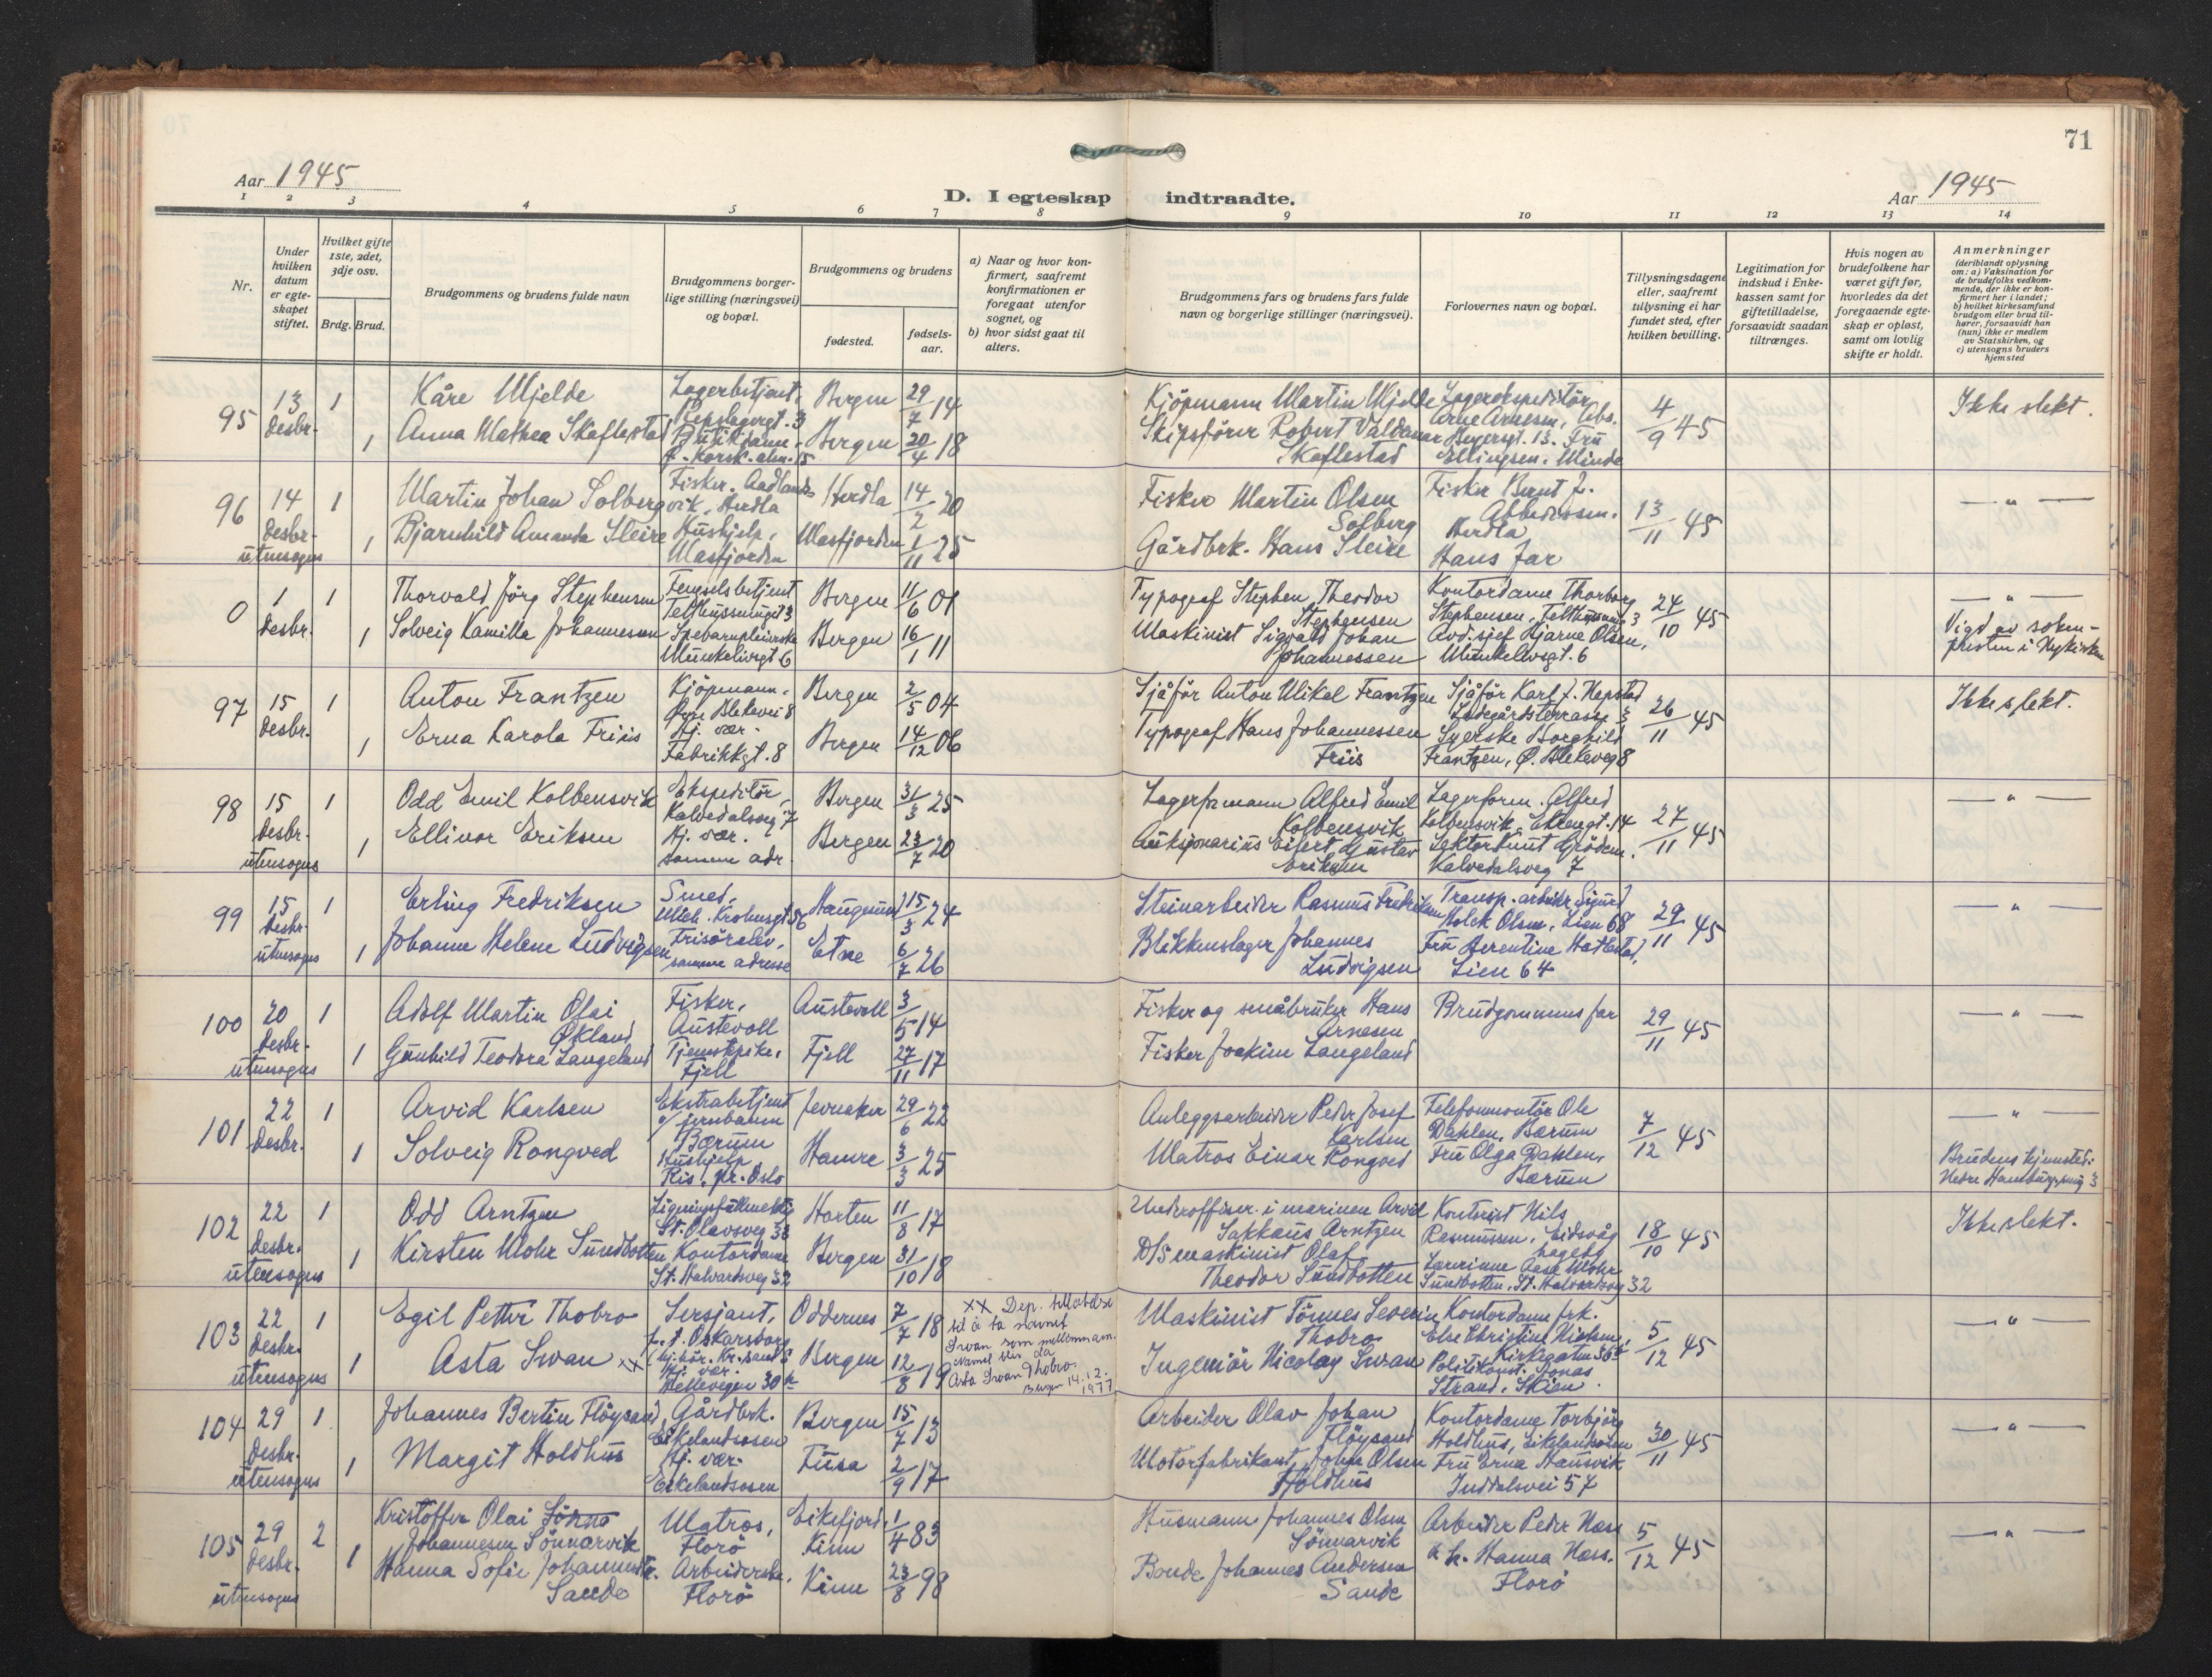 71
Aar 1945
D. I egteskap indtraadte.
Aar 1945
1 2 3 4 5 6 7 8 9 10 11 12 13 14
Nr.
Under hvilken datum er egteskapet stiftet.
Hvilket gifte 1ste, 2det, 3dje osv.
Brdg. Brud.
Brudgommens og brudens fulde navn
Brudgommens borgerlige stilling (næringsvei) og bopæl.
Brudgommens og brudens
fødested.
fødselsaar.
a) Naar og hvor konfirmert, saafremt konfirmationen er foregaat utenfor sognet, og
b) hvor sidst gaat til alters.
Brudgommens fars og brudens fars fulde navn og borgerlige stillinger (næringsvei).
Forlovernes navn og bopæl.
Tillysningsdagene eller, saafremt tillysning ei har fundet sted, efter hvilken bevilling.
Legitimation for indskud i Enkekassen samt for giftetilladelse, forsaavidt saadan tiltrænges.
Hvis nogen av brudefolkene har været gift før, hvorledes da det foregaaende egteskap er opløst, samt om lovlig skifte er holdt.
Anmerkninger
(deriblandt oplysning om: a) Vaksination for de brudefolks vedkommende, der ikke er konfirmert her i landet; b) hvilket kirkesamfund brudgom eller brud tilhører, forsaavidt han (hun) ikke er medlem av Statskirken, og c) utensogns bruders hjemsted
95 13 Desbr. 1 Kåre Mjelde Lagerbetjent, Repslagergt. 3 Bergen 29/7 14
1 Anna Mathea Skaflestad Butikdame Bergen 20/4 18
Kjöpmann Martin Mjelde
Skipsförer Robert Valdemar Skaflestad
Lagerekspeditör Arne Arnesen, Abs. Beyersgt. 13. Fru Ellingsen. Minde
4/9 45 Ikke slekt.
96 14 Desbr. utensogns 1 Martin Johan Solberg Fisker. Aadlandsvik. Herdla Herdla 14/2 20
1 Bjarnhild Amanda Sleire Hushjelp, Masfjorden Masfjorden 1/11 25
Fisker Martin Olsen Solberg
Gårdbrk. Hans Sleire
Fisker Bernt J. Herdla
Hans far
13/11 45 — " —
0 1 Desbr. 1 Thorvald Jörg Stephensen Fengselsbetjent Telthussmuget 3 Bergen 11/6 01
1 Solveig Kamilla Johannessen Spebarnpleierske Munkelivsgt 6 Bergen 16/1 11
Typograf Stephen Theodor Stephensen
Maskinist Sigvald Johan Johannessen
Kontordame Thorborg Stephensen, Telthussmug 3
Avd.sjef Hjarne Olsen, Munkelivsgt. 6
24/10 45 — " —
Vigd av soknepresten i Nykirken
97 15 Desbr. 1 Anton Frantzen Kjöpmann. Øvre Blekevei 8 Bergen 2/5 04
1 Erna Karola Friis Hj. vær. Fabrikkgt. 8 Bergen 14/12 06
Sjåför Anton Mikel Frantzen
Typograf Hans Johannessen Friis
Sjåför Karl J. Hepstad Ladegårdsterrasse 3
Syerske Borghild Frantzen, Ø. Blekeveg 8
26/11 45 Ikke slekt.
98 15 Desbr. utensogns 1 Odd Emil Kolbensvik Ekspeditör, Kalvedalsveg 7 Bergen 31/3 25
1 Ellinor Eriksen Hj. vær. samme adr. Bergen 23/7 20
Lagerformann Alfred Emil Kolbensvik
Auksjonarius Eifert Gustav Eriksen
Lagerform. Alfred Kolbensvik, Ekrengt. 14
Lektor Knut Grödem. Kalvedalsveg 7
27/11 45 — " —
99 15 Desbr. utensogns 1 Erling Fredriksen Smed, Mich. Krohnsgt 56 Haugesund 15/3 24
1 Johanne Helene Ludvigsen Frisörelev, samme adresse Etne 6/7 26
Steinarbeider Rasmus Fredriksen
Blikkenslager Johannes Ludvigsen
Transp. arbeider Sigurd Holck Olsen, Lien 68
Fru Berentine Hatlestad, Lien 64
29/11 45 — " —
100 20 Desbr. utensogns 1 Adolf Martin Olai Økland Fisker, Austevoll Austevoll 3/5 14
1 Gunhild Teodora Langeland Tjenestpike, Fjell Fjell 27/11 17
Fisker og småbruker Hans Arnesen
Fisker Joakim Langeland
Brudgommens far
29/11 45 — " —
101 22 Desbr. 1 Arvid Karlsen Ekstrabetjent v/ jernbanen Bærum Jevnaker 29/6 22
1 Solveig Rongved Hushjelp Ris, pr. Oslo Hamre 3/3 25
Anleggsarbeider Peder Josef Karlsen
Matros Einar Rongved
Telefonmontör Ole Dahlen, Bærum
Fru Olga Dahlen, Bærum
7/12 45 — " —
Brudens hjemsted: Nedre Hamburgersmug 3
102 22 Desbr. utensogns 1 Odd Arntzen Ligningsfullmektig St. Olavsveg 38 Horten 11/8 17
1 Kirsten Mohr Sundbotten Kontordame St. Halvardsveg 32 Bergen 31/10 18
Underoffiser i marinen Arvid Sakkaus Arntzen
D/S maskinist Olaf Theodor Sundbotten
Kontorist Nils Rasmussen, Eidsvåg hageby
Lærerinne Aase Mohr Sundbotten, St. Halvardsveg 32
18/10 45 Ikke slekt.
103 22 Desbr. utensogns 1 Egil Petter Thobro Sersjant, f.t. Oskarsborg (hj.hör. Kr.sand S Oddernes 7/7 18
1 Asta Swan xx Hj. vær. Hellevegen 30 Bergen 12/8 19
xx Dep. tillatelse til å ta navnet Swan som mellomnavn. Navnet blir da Asta Swan Thobro. Bergen 14.12.1977
Maskinist Tönnes Severin Thobro
Ingeniör Nicolay Swan
Kontordame frk. Else Christine Nielsen, Kirkegaten 36
Politikonst. Jonas Strand, Skien.
5/12 45 — " —
104 29 Desbr. utensogns 1 Johannes Bertin Flöysand Gårdbrk. Eikelandsosen Bergen 15/7 13
1 Margit Holdhus Hj. vær. Eikelandsosen Fusa 2/9 17
Arbeider Olav Johan Flöysand
Motorfabrikant, Johan Olsen Holdhus
Kontordame Torbjörg Holdhus, Eikelandsosen
Fru Erna Hausvik Inddalsvei 57
30/11 45 — " —
105 29 Desbr. utensogns 2 Kristoffer Olai Johannesen Sönnarvik Matros, Florö Eikefjord, Kinn 1/4 83
1 Hanna Sofie Johannesdtr. Sande Arbeiderske, Florö Kinn 23/8 98
Husmann Johannes Olsen Sönnarvik
Bonde Johannes Andersen Sande
Arbeider Peder Næss
Hanna Næss. Florö
5/12 45 — " —